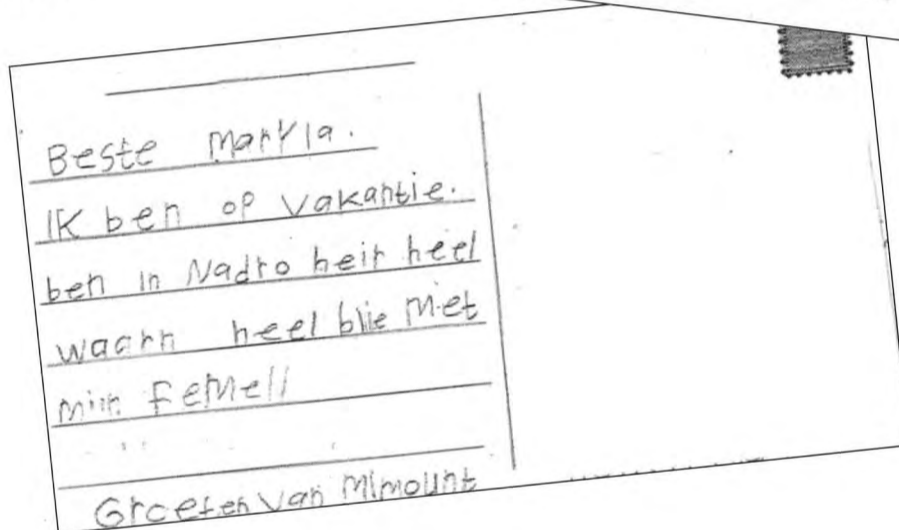 Beste Markia.
Ik ben op vakantie.
ben in Nadro heir heel
waarn heel blie met
min femell
Groeten van Mimount